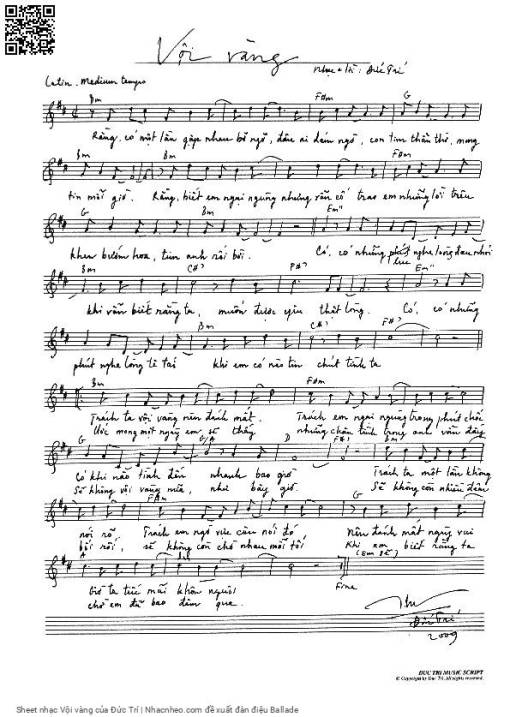 Vội vàng
Nhạc + lời : Đức Trí
Latin. Medium tempo
Bm F#m G
Rằng, có một lần gặp nhau bỡ ngỡ, đâu ai dám ngờ, con tim thẫn thờ, mong
Bm Bm F#m
tin mãi giờ. Rằng, biết em ngại ngùng nhưng vẫn cố trao em những lời trêu
G Bm Em7
khen bướm hoa, tim anh rối bời. Có, có những phút nghe lòng đau nhói
Bm C#7 F#7 Em7
khi vẫn biết rằng ta, muốn được yêu thật lòng. Có, có những
Bm C#7 F#7
phút nghe lòng tê tái khi em có nào tin chút tình ta
Bm F#m
Trách ta vội vàng nên đánh mất. Trách em ngại ngùng trong phút chốc
Ước mong một ngày em sẽ thấy những chân tình trong anh vẫn đầy
G G/A D F#7 Bm
Có khi nào tình đến nhanh bao giờ Trách ta một lần không
Sẽ không vội vàng nữa, như bây giờ. Sẽ không còn nhiều đêm
F#m G
nói rõ Trách em ngờ vực câu nói đó Nên đánh mất ngày vui
bối rối, sẽ không còn cho nhau mắt lối Khi em biết rằng ta
(Em sẽ)
A Bm
Giờ ta tiếc mãi khôn nguôi
chờ em đã bao đêm qua. Fine
Đức Trí
2009
DUC TRI MUSIC SCRIPT
© Copyright by Duc Tri. All rights reserved.
Sheet nhạc Vội vàng của Đức Trí | Nhacnheo.com đề xuất đàn điệu Ballade